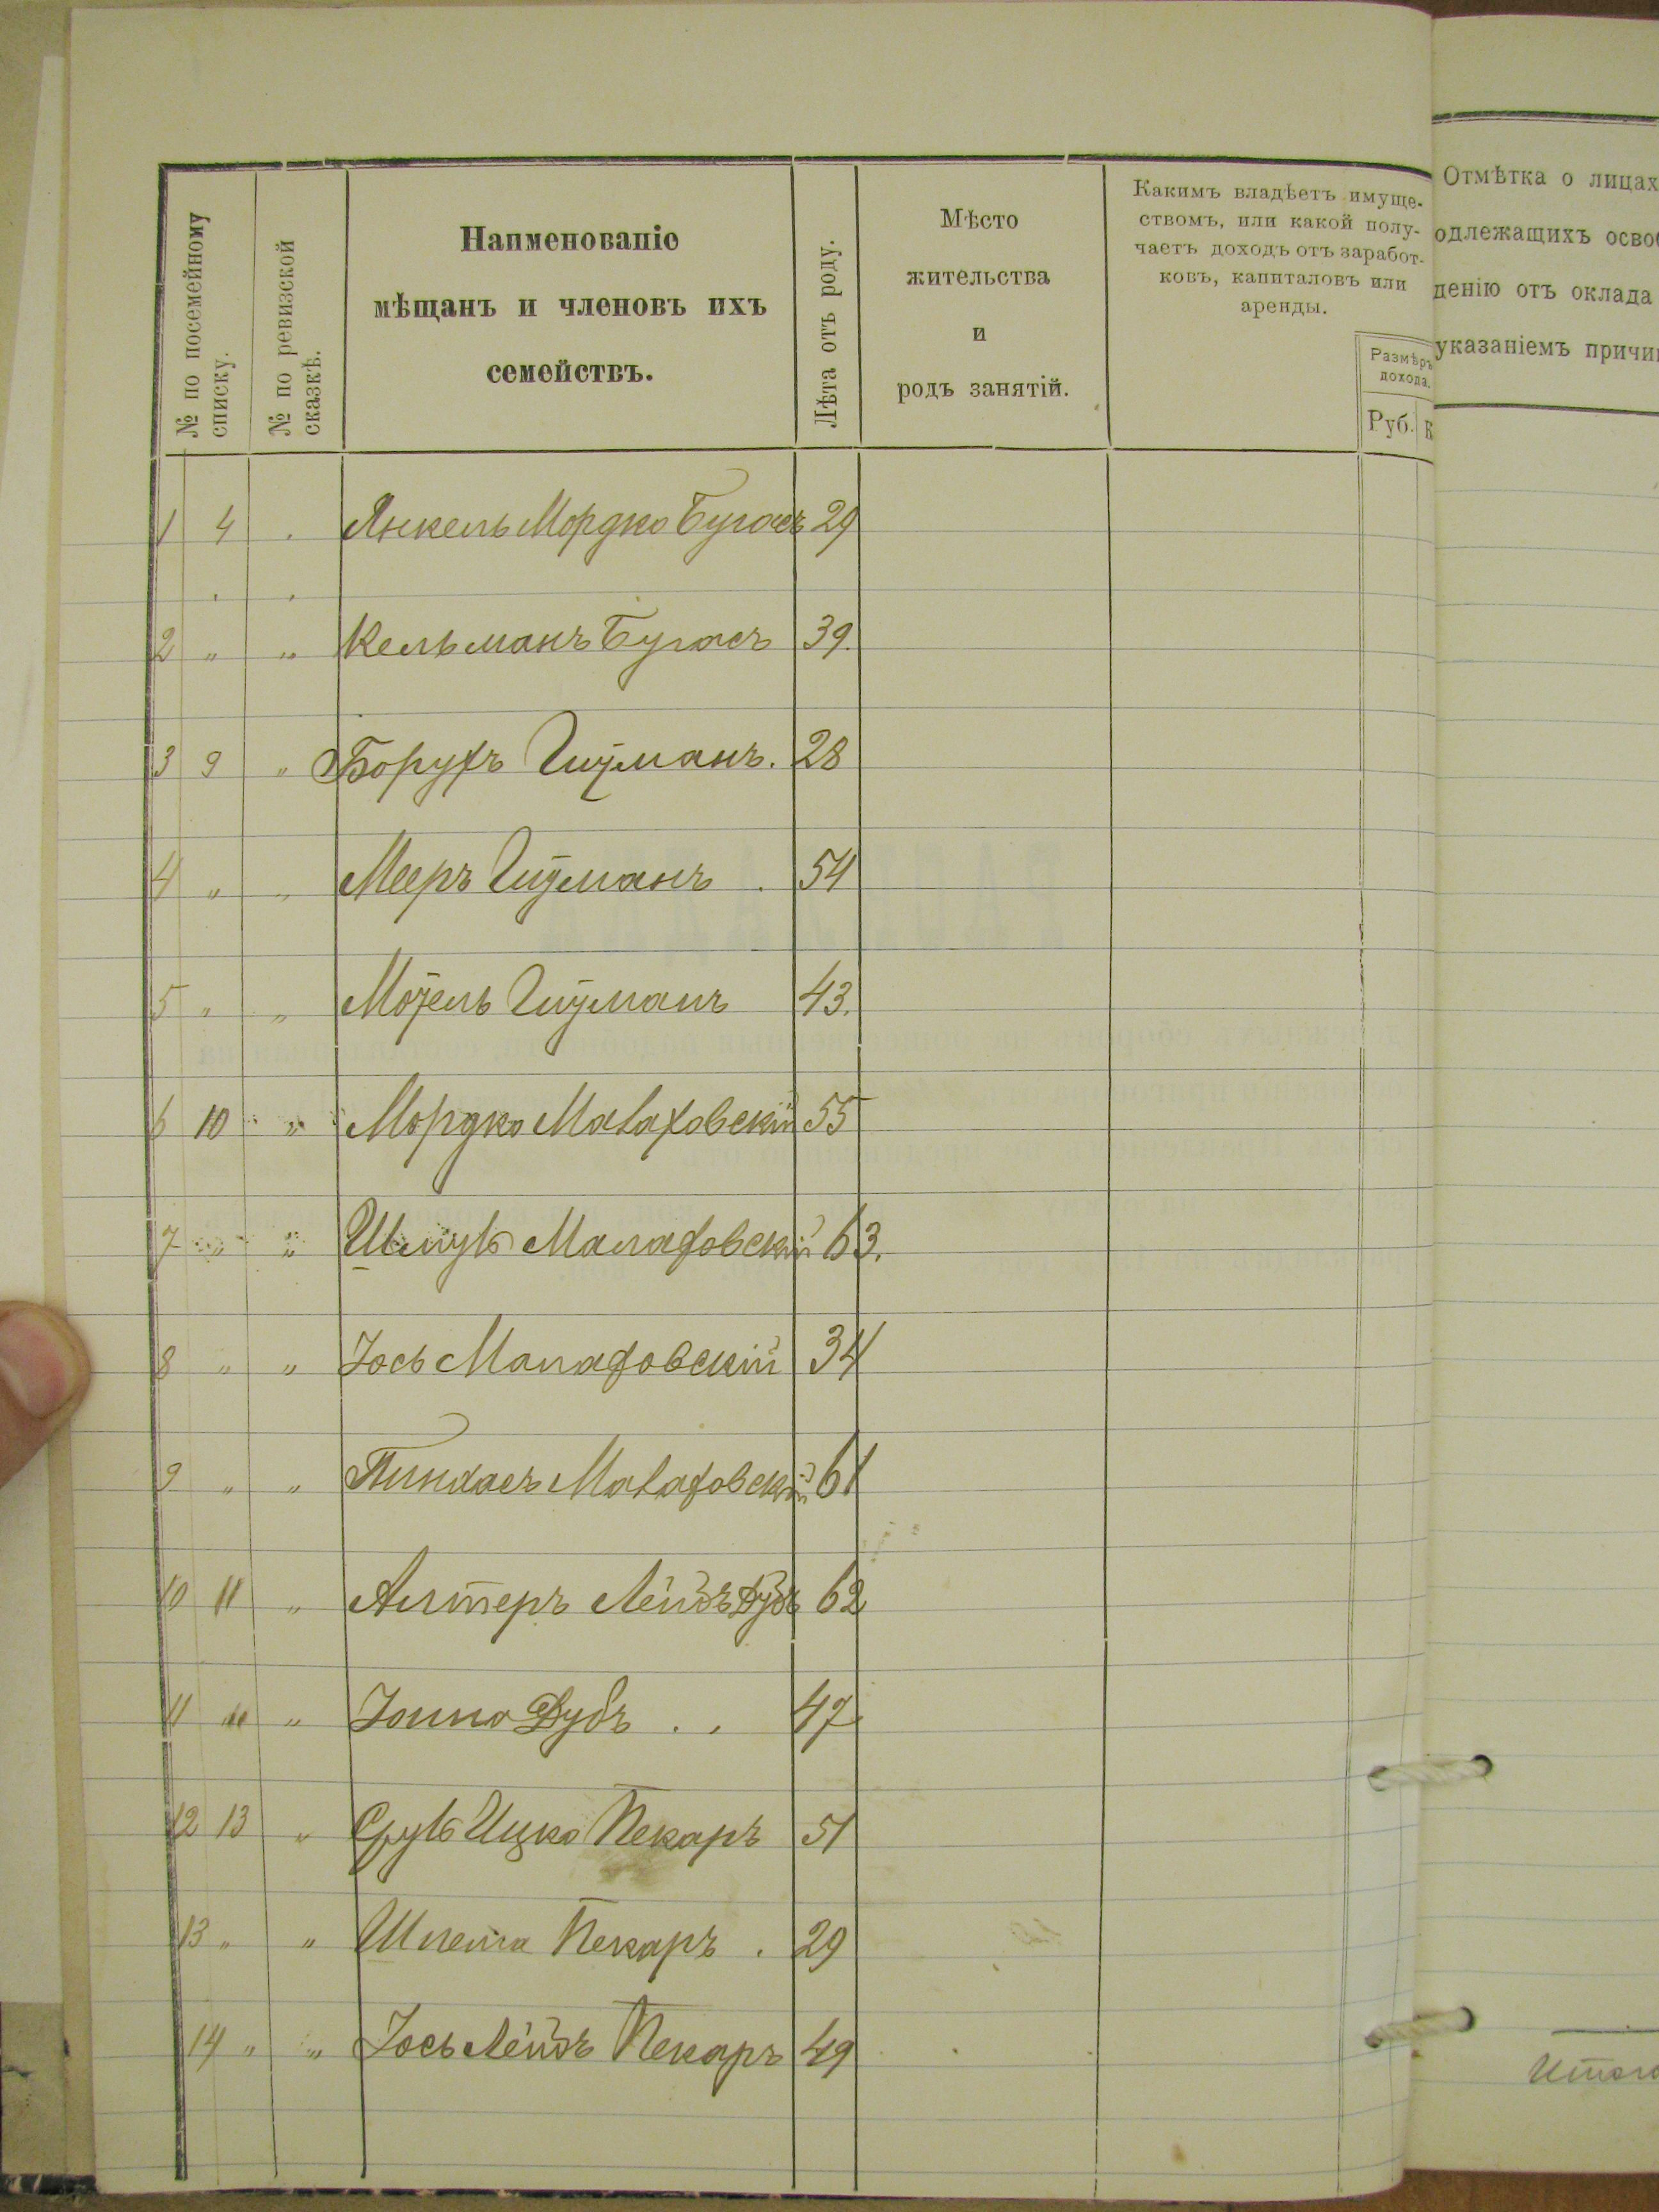 № по посемейному
списку.
№ по ревизской
сказкѣ.
Наименованіе
мѣщанъ и членовъ ихъ
семействъ.
Лѣта отъ роду.
Мѣсто
жительства
и
родъ занятій.
Какимъ владѣетъ имуще-
ствомъ, или какой полу-
чаетъ доходъ отъ заработ-
ковъ, капиталовъ или
аренды.
Размѣръ
дохода.
Руб. К
Отмѣтка о лицахъ
одлежащихъ освоб
денію отъ оклада
указаніемъ причин
1 4 Янкель Мордко Бугасъ 29
2 " " Кельманъ Бугасъ 39.
3 9 " Борухъ Гитманъ. 28
4 " " Мееръ Гитманъ . 54
5 " " Мотель Гитманъ 43.
6 10 " Мордко Малаховскій 55
7 " " Шмуль Малаховскій 63.
8 " " Іось Малаховскій 34
9 " " Пинхасъ Малаховскій 61
10 11 " Алтеръ Лейбъ Дубъ 62
11 " " Дубъ . . 47
12 13 " Сруль Ицко Пекаръ 51
13 " " Пекаръ . 29
14 " " Іось Лейбъ Пекаръ 49
Итого